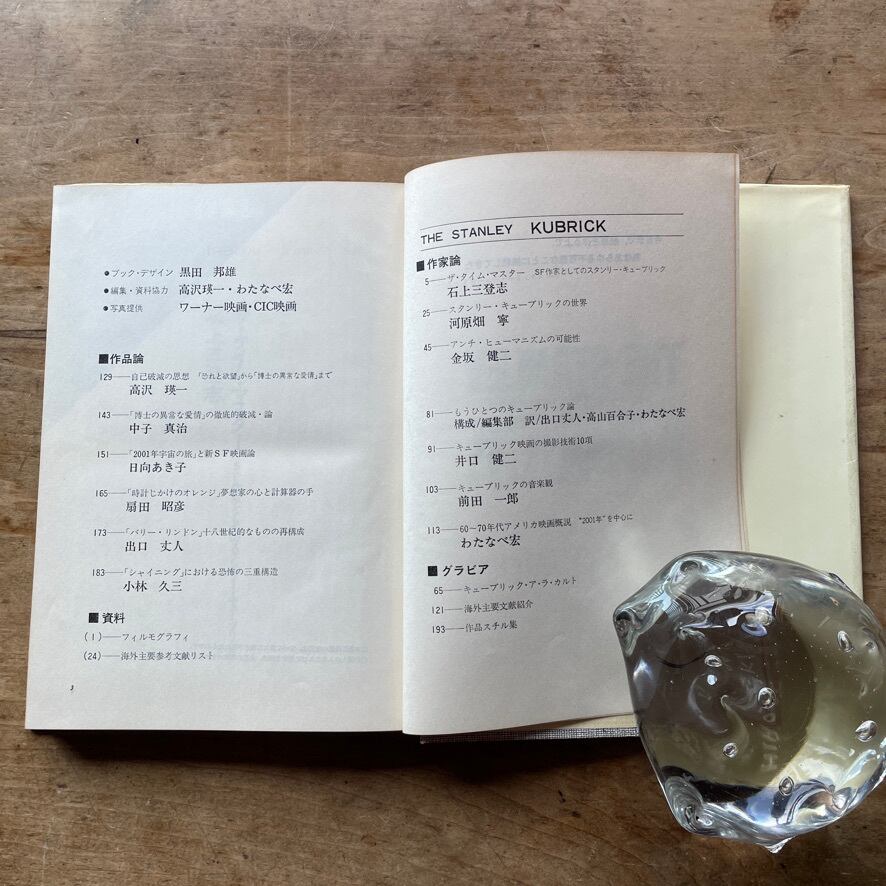 ●ブック・デザイン 黒田 邦雄
●編集・資料協力 高沢瑛一・わたなべ宏
●写真提供 ワーナー映画・CIC映画
■作品論
129──自己破滅の思想 「恐れと欲望」から「博士の異常な愛情」まで
高沢 瑛一
143──「博士の異常な愛情」の徹底的破滅・論
中子 真治
151──「2001年宇宙の旅」と新SF映画論
日向あき子
165──「時計じかけのオレンジ」夢想家の心と計算器の手
扇田 昭彦
173──「バリー・リンドン」十八世紀的なものの再構成
出口 丈人
183──「シャイニング」における恐怖の三重構造
小林 久三
■資料
(1)──フィルモグラフィ
(24)──海外主要参考文献リスト
3
THE STANLEY KUBRICK
■作家論
5──ザ・タイム・マスター SF作家としてのスタンリー・キューブリック
石上三登志
25──スタンリー・キューブリックの世界
河原畑 寧
45──アンチ・ヒューマニズムの可能性
金坂 健二
81──もうひとつのキューブリック論
構成/編集部 訳/出口丈人・高山百合子・わたなべ宏
91──キューブリック映画の撮影技術10項
井口 健二
103──キューブリックの音楽観
前田 一郎
113──60〜70年代アメリカ映画概説 "2001年"を中心に
わたなべ宏
■グラビア
65──キューブリック・ア・ラ・カルト
121──海外主要文献紹介
193──作品スチル集